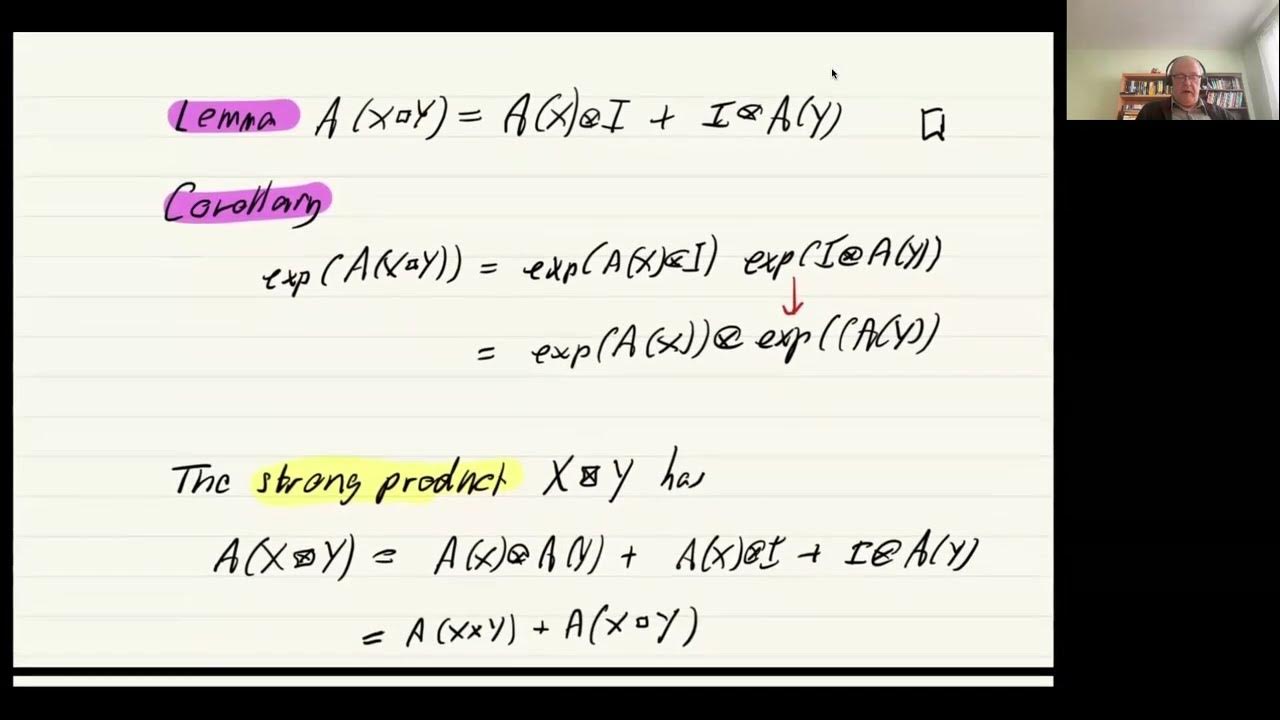 Lemma A(X□Y) = A(X)⊗I + I⊗A(Y) □
Corollary
exp(A(X□Y)) = exp(A(X)⊗I) exp(I⊗A(Y))
↓
= exp(A(X))⊗ exp((A(Y))
The strong product X⊠Y has
A(X⊠Y) = A(X)⊗A(Y) + A(X)⊗I + I⊗A(Y)
= A(X×Y) + A(X□Y)